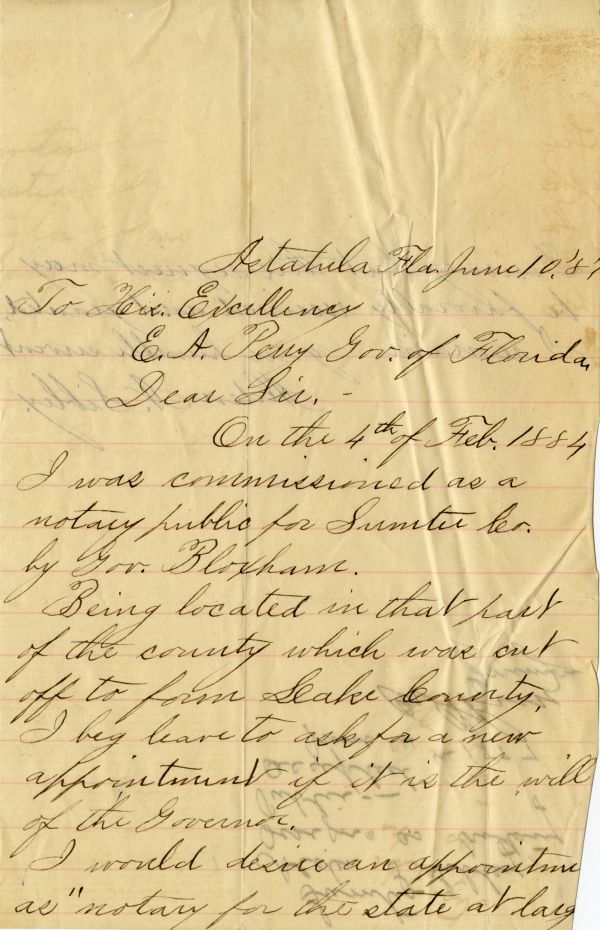 Astatula Fla. June 10, '87
To His. Excellency
E. A. Perry Gov. of Florida,
Dear Sir. -
On the 4th of Feb. 1884
I was commissioned as a
notary public for Sumter Co.
by Gov. Bloxham.
Being located in that part
of the county which was cut
off to form Lake County,
I beg leave to ask for a new
appointment if it is the will
of the Governor.
I would desire an appointme
as "notary for the state at larg